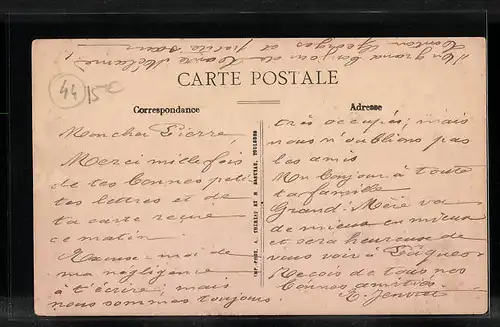 Un grand bonjour de
Tonton Georges et petite sœur
CARTE POSTALE
44
15€
Correspondance
Adresse
Mon cher Pierre
Merci mille fois
de tes bonnes peti
tes lettres et de
ta carte reçue
ce matin.
Excuse-moi de
ma négligence
à t'écrire, mais
nous sommes toujours
très occupés; mais
nous n'oublions pas
les amis
Un bonjour à toute
ta famille
Grand-Mère va
de mieux en mieux
et sera heureuse de
vous voir à
Reçois de tous nos
bonnes amitiés
IMP.-PHOT. A. THIRIAT ET H. BASUYAU, TOULOUSE